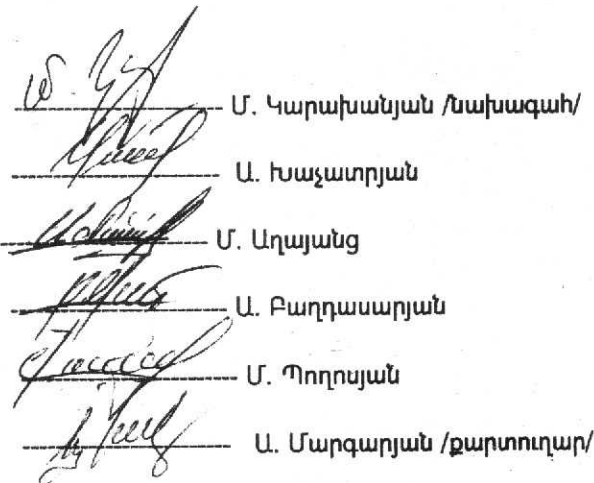 Մ. Կարախանյան /նախագահ/
Ա. Խաչատրյան
Մ. Աղայանց
Ա. Բաղդասարյան
Մ. Պողոսյան
Ա. Մարգարյան /քարտուղար/